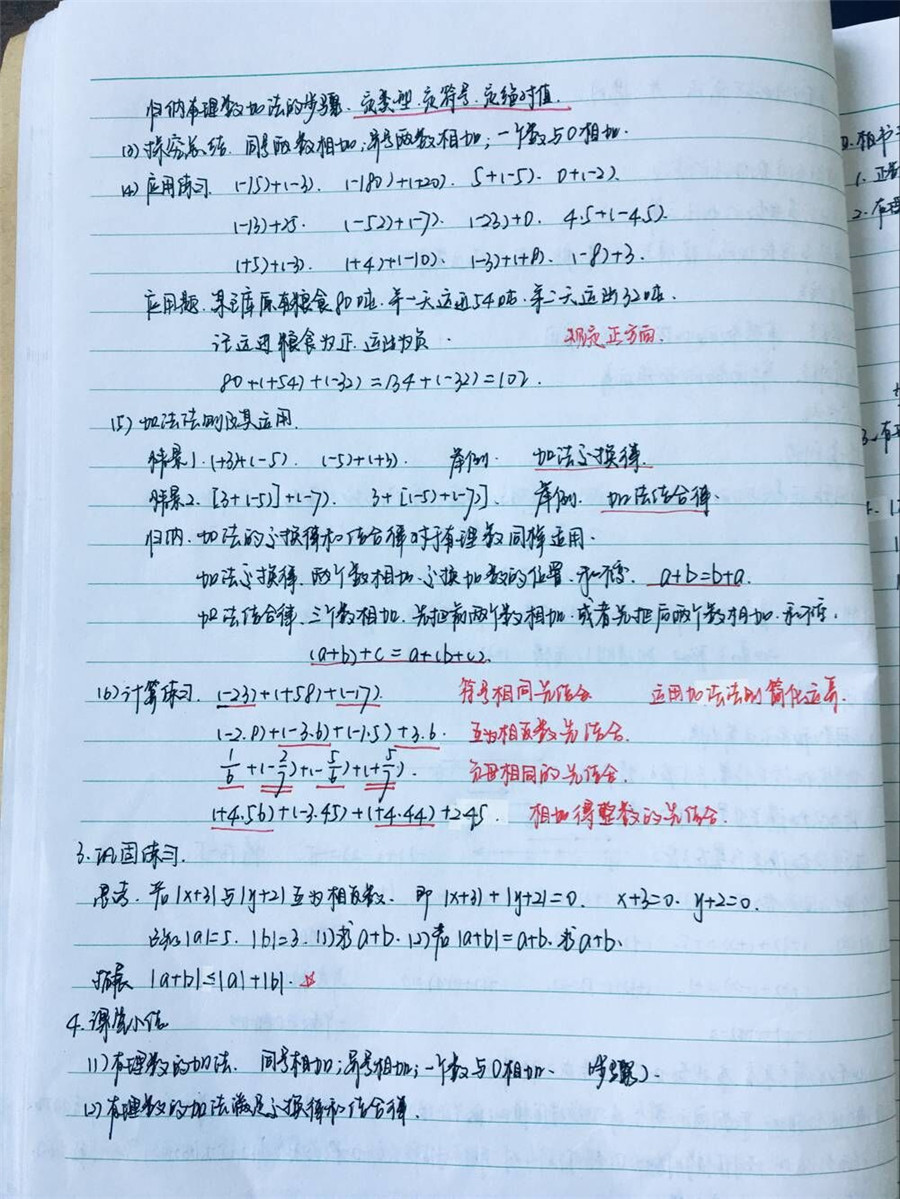 归纳有理数加法的步骤. 定类型. 定符号. 定绝对值.
(3) 探究总结. 同号两数相加; 异号两数相加; 一个数与0相加.
(4) 应用练习. (-15)+(-3). (-180)+(+20). 5+(-5). 0+(-2).
(-13)+25. (-52)+(-7). (-23)+0. 4.5+(-4.5).
(+5)+(-3). (+4)+(-10). (-3)+(+8). (-8)+3.
应用题. 某仓库原有粮食80吨. 第一天运进54吨. 第二天运出32吨.
记运进粮食为正. 运出为负. 规定正方向.
80+(+54)+(-32)=134+(-32)=102.
(5) 加法法则及其运用.
情景1. (+3)+(-5). (-5)+(+3). 举例. 加法交换律.
情景2. [3+(-5)]+(-7). 3+[(-5)+(-7)]. 举例. 加法结合律.
归纳. 加法的交换律和结合律对于有理数同样适用.
加法交换律. 两个数相加. 交换加数的位置. 和不变. a+b=b+a.
加法结合律. 三个数相加. 先把前两个数相加. 或者先把后两个数相加. 和不变.
(a+b)+c=a+(b+c).
(6) 计算练习. (-23)+(+58)+(-17). 符号相同先结合. 运用加法法则简化运算.
(-2.8)+(-3.6)+(-1.5)+3.6. 互为相反数先结合.
1/6+(-2/7)+(-5/6)+(+5/7). 分母相同的先结合.
(+4.56)+(-3.45)+(+4.44)+2.45. 相加得整数的先结合.
3. 巩固练习.
思考. 若|x+3|与|y+2|互为相反数. 即|x+3|+|y+2|=0. x+3=0. y+2=0.
已知|a|=5. |b|=3. (1)求a+b. (2)若|a+b|=a+b. 求a+b.
拓展 |a+b|≤|a|+|b|.
4. 课堂小结
(1) 有理数的加法. 同号相加; 异号相加; 一个数与0相加. (步骤).
(2) 有理数的加法满足交换律和结合律.